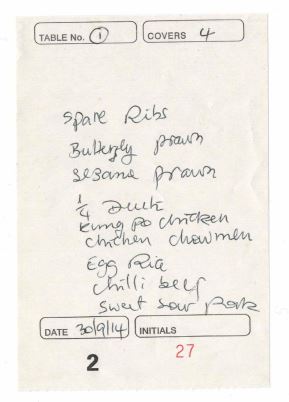 TABLE No. 1 COVERS 4
Spare Ribs
Butterfly prawn
Sesame prawn
1/4 Duck
Kung Po chicken
chicken chowmen
Egg Rice
chilli beef
Sweet sour Pork
DATE 30/9/14 INITIALS
2 27